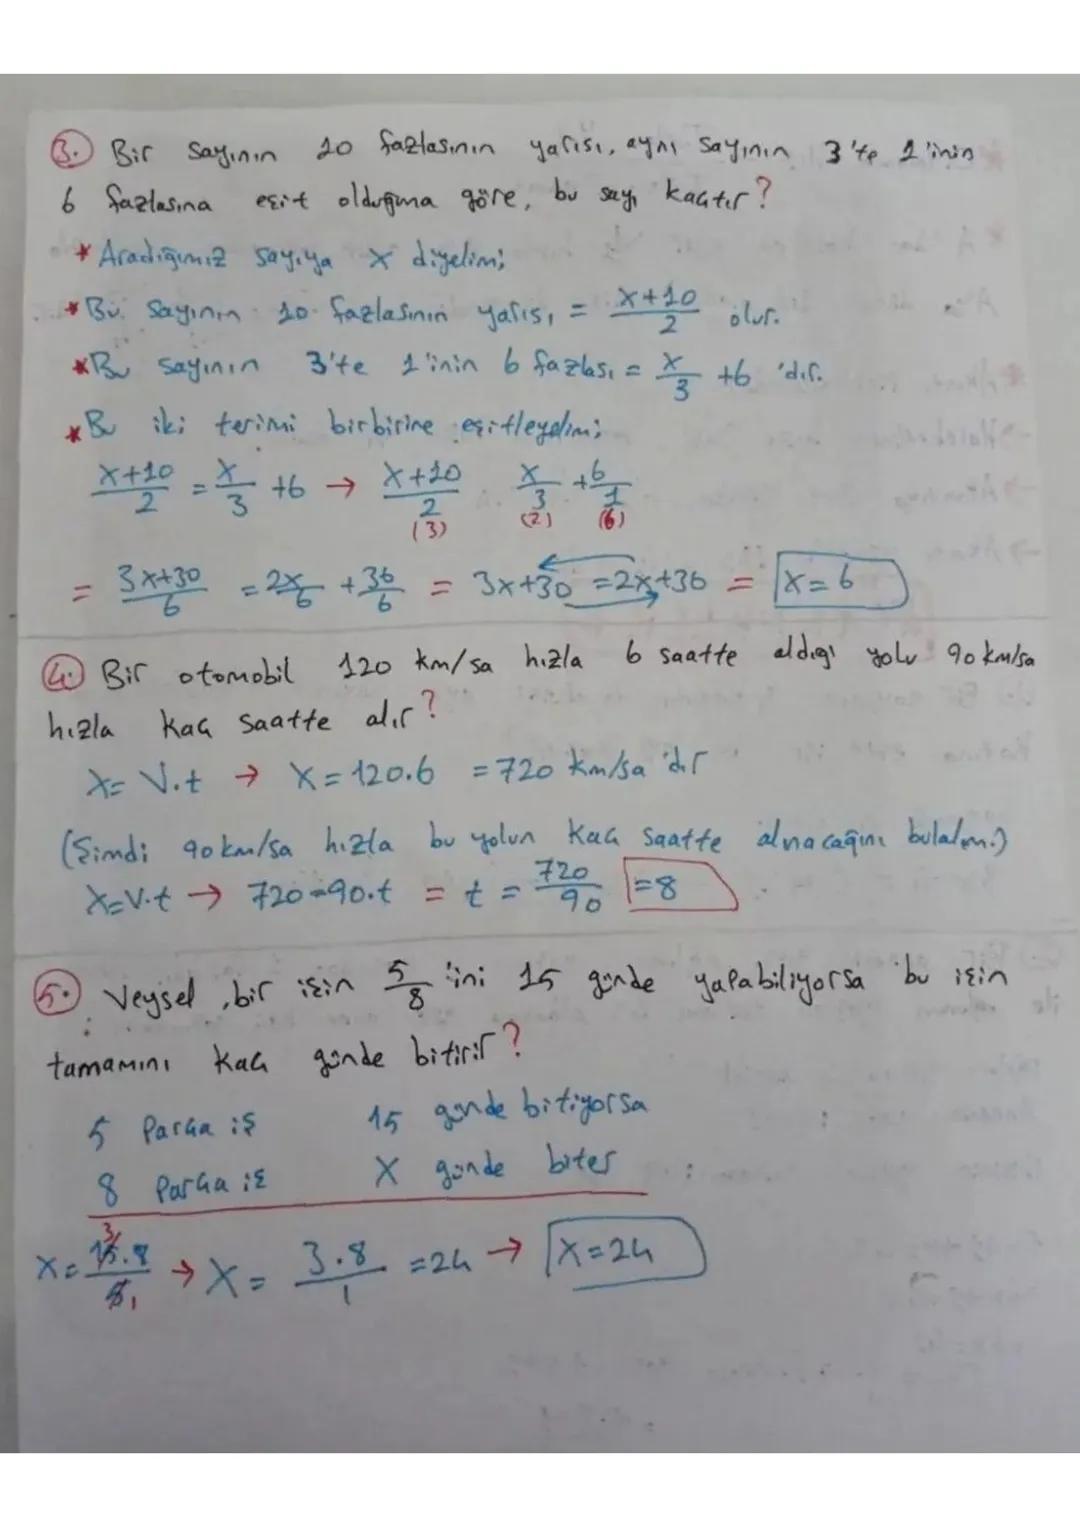 3. Bir sayının 10 fazlasının yarısı, aynı sayının 3'te 1'inin
6 fazlasına eşit olduğuna göre, bu sayı kaçtır?
* Aradığımız sayıya x diyelim;
* Bu sayının 10 fazlasının yarısı = x+10/2 olur.
* Bu sayının 3'te 1'inin 6 fazlası = x/3 +6 'dır.
* Bu iki terimi birbirine eşitleyelim;
x+10/2 = x/3 +6 → x+10/2 (3) x/3 (2) + 6/1 (6)
= 3x+30/6 = 2x/6 + 36/6 = 3x+30 = 2x+36 = x=6
4. Bir otomobil 120 km/sa hızla 6 saatte aldığı yolu 90 km/sa
hızla kaç saatte alır?
X= V.t → X=120.6 =720 km/sa 'dır
(Şimdi 90 km/sa hızla bu yolun kaç saatte alınacağını bulalım.)
X=V.t → 720=90.t = t = 720/90 =8
5. Veysel, bir işin 5/8 'ini 15 günde yapabiliyorsa bu işin
tamamını kaç günde bitirir?
5 Parça iş 15 günde bitiyorsa
8 Parça iş X günde biter
X= 15.8/5 3 1 → X= 3.8/1 =24 → X=24